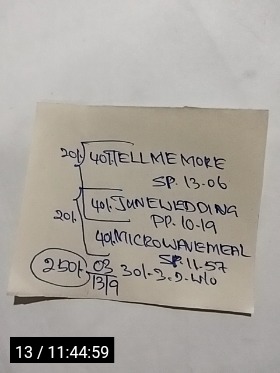 20/- 40/- TELLMEMORE
SP. 13-06
40/- JUNEWEDDING
20/- PP. 10-19
40/- MICROWAVEMEAL
SP. 11-57
250/- 03 30/- 3.
13/9
13 / 11:44:59